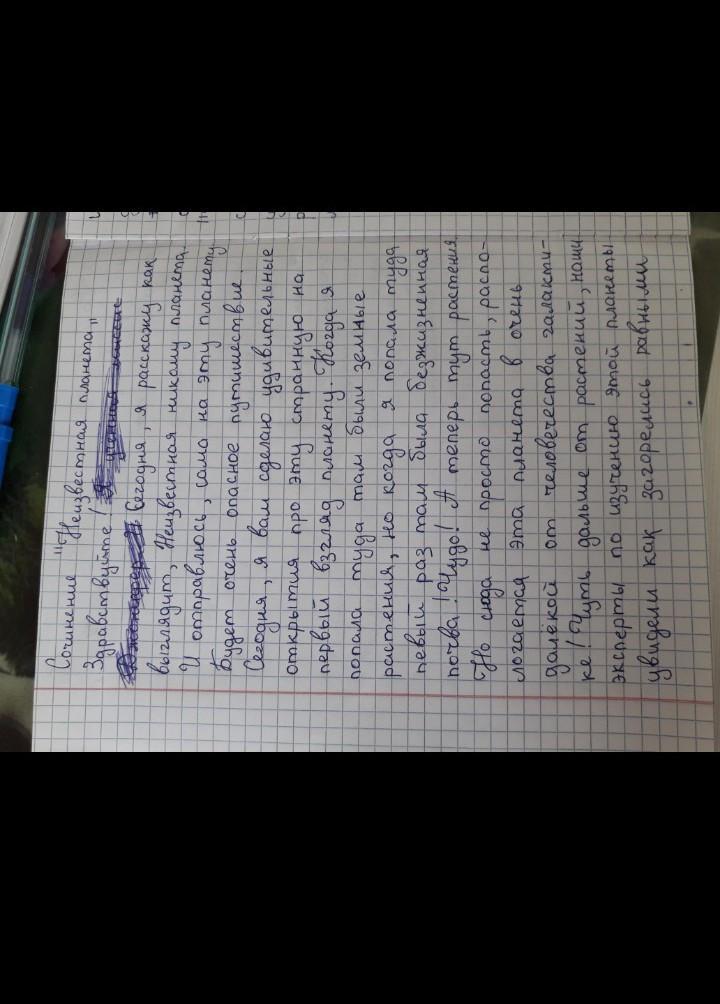 Сочинение "Неизвестная планета"
Здравствуйте!
Сегодня, я расскажу как
выглядит, Неизвестная никому планета.
И отправлюсь, сама на эту планету
Будет очень опасное путишествие.
Сегодня, я вам сделаю удивительные
открытия про эту странную на
первый взгляд планету. Когда я
попала туда там были земные
растения, но когда я попала туда
певый раз там была безжизненная
почва! Чудо! А теперь тут растения.
Но сюда не просто попасть, распо-
логается эта планета в очень
далёкой от человечества галакти-
ке! Чуть дальше от растений, наши
эксперты по изучению этой планеты
увидели как загорелись равными